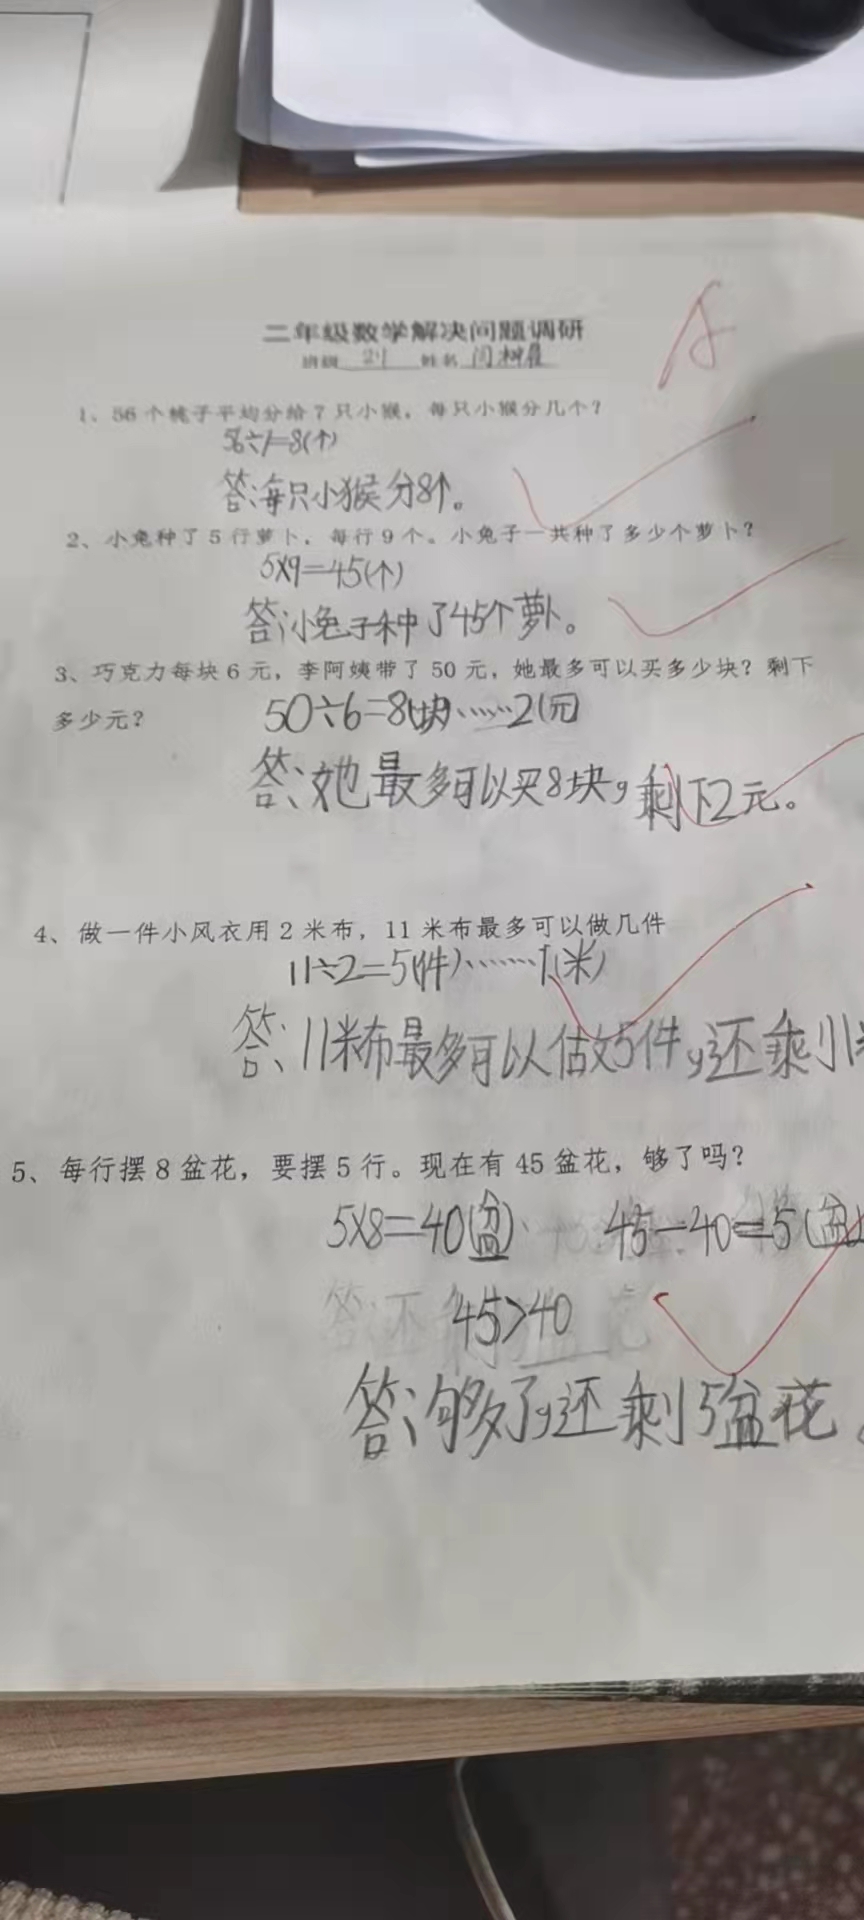 二年级数学解决问题调研
班级 21 姓名
A
1、56个桃子平均分给7只小猴，每只小猴分几个？
56÷7=8(个)
答:每只小猴分8个。
2、小兔种了5行萝卜，每行9个。小兔子一共种了多少个萝卜？
5×9=45(个)
答:小兔子种了45个萝卜。
3、巧克力每块6元，李阿姨带了50元，她最多可以买多少块？剩下
多少元？
50÷6=8(块)……2(元
答:她最多可以买8块,剩下2元。
4、做一件小风衣用2米布，11米布最多可以做几件
11÷2=5(件)……1(米)
答:11米布最多可以做5件,还乘刂1米
5、每行摆8盆花，要摆5行。现在有45盆花，够了吗？
5×8=40(盆) 45-40=5(盆)
45>40
答:够了,还剩5盆花。